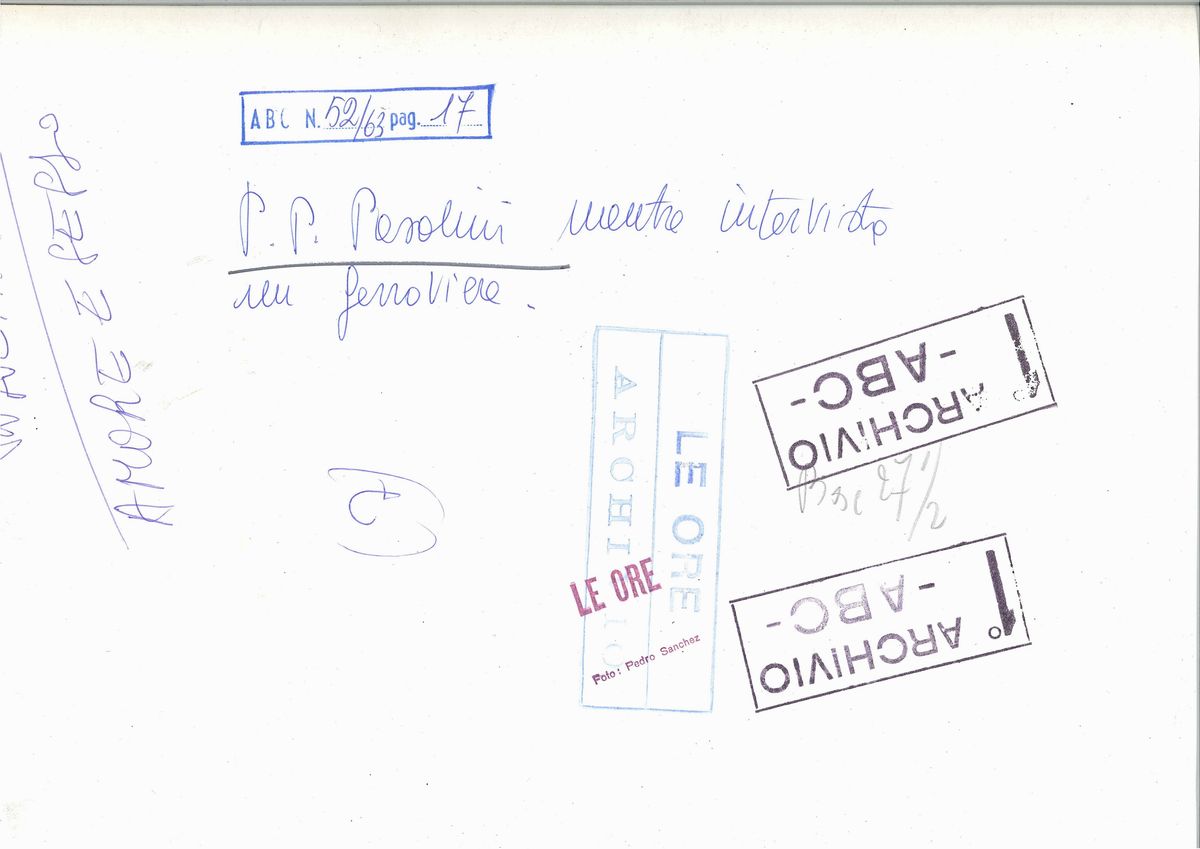 ABC N. 52/63 pag. 17
P. P. Pasolini mentre intervista
un ferroviere.
AMORE E
LE ORE
ARCHIVIO
LE ORE
Foto: Pedro Sanchez
1° ARCHIVIO
-ABC-
27/2
1° ARCHIVIO
-ABC-